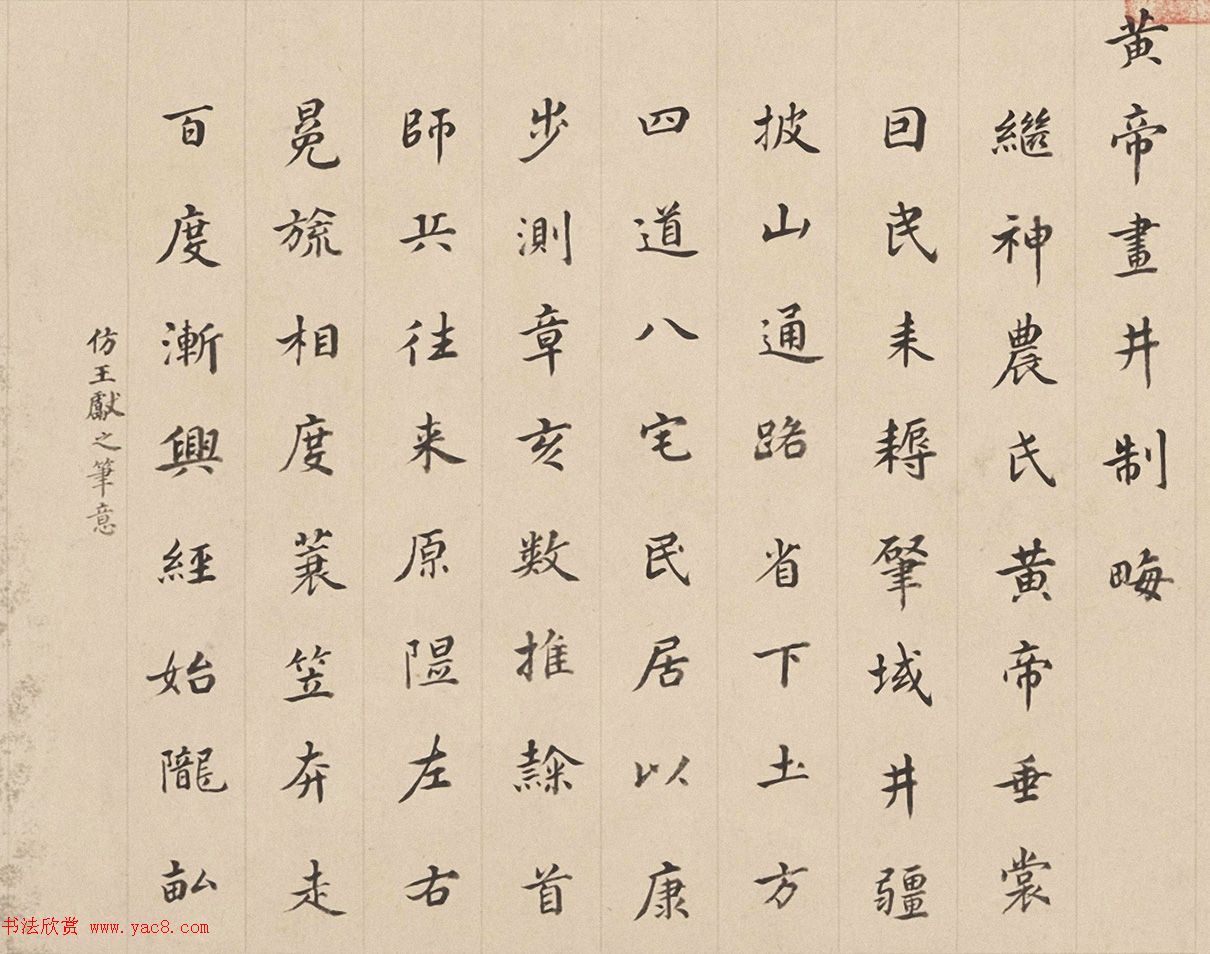 黄帝畫井制畮
繼神農氏黄帝垂裳
囙民耒耨肇域井疆
披山通路省下土方
四道八宅民居以康
步測章亥数推隷首
師兵往来原隰左右
冕旒相度蓑笠奔走
百度漸興經始隴畝
仿王獻之筆意
书法欣赏 www.yac8.com